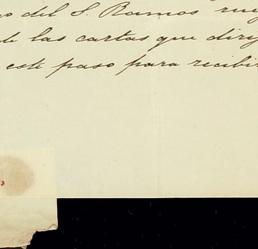 del S. Ramos
las cartas que diri
este paso para recibir